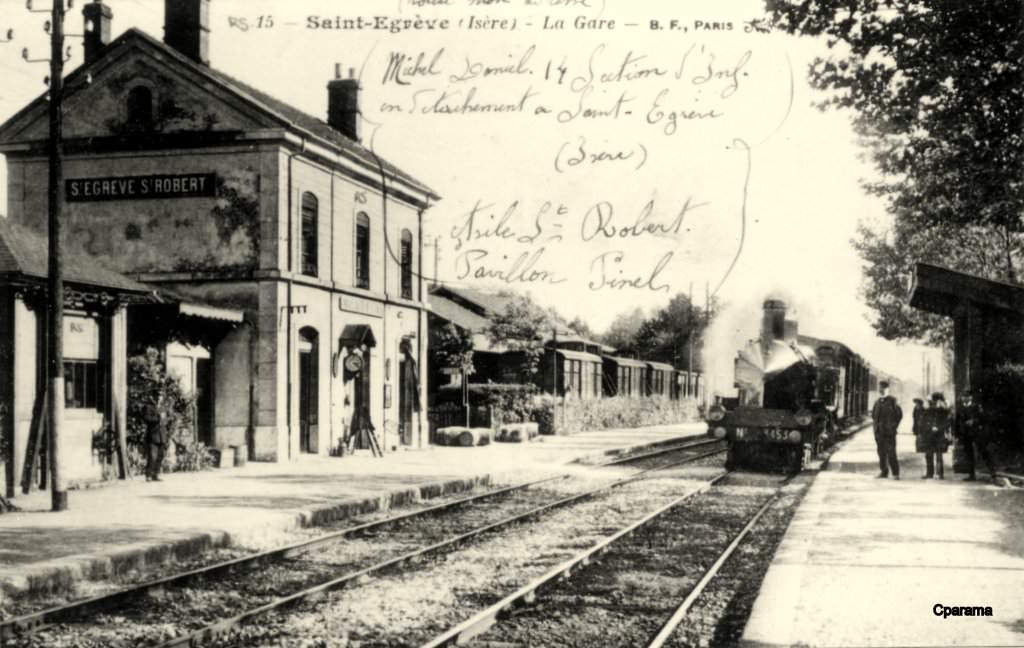 15 - Saint-Egrève (Isère) - La Gare - B. F., PARIS
Michel Daniel. 14 Section d'Inf.
en détachement a Saint-Egrève
(Isère)
Asile St Robert.
Pavillon Pinel
ST EGRÈVE ST ROBERT
Cparama